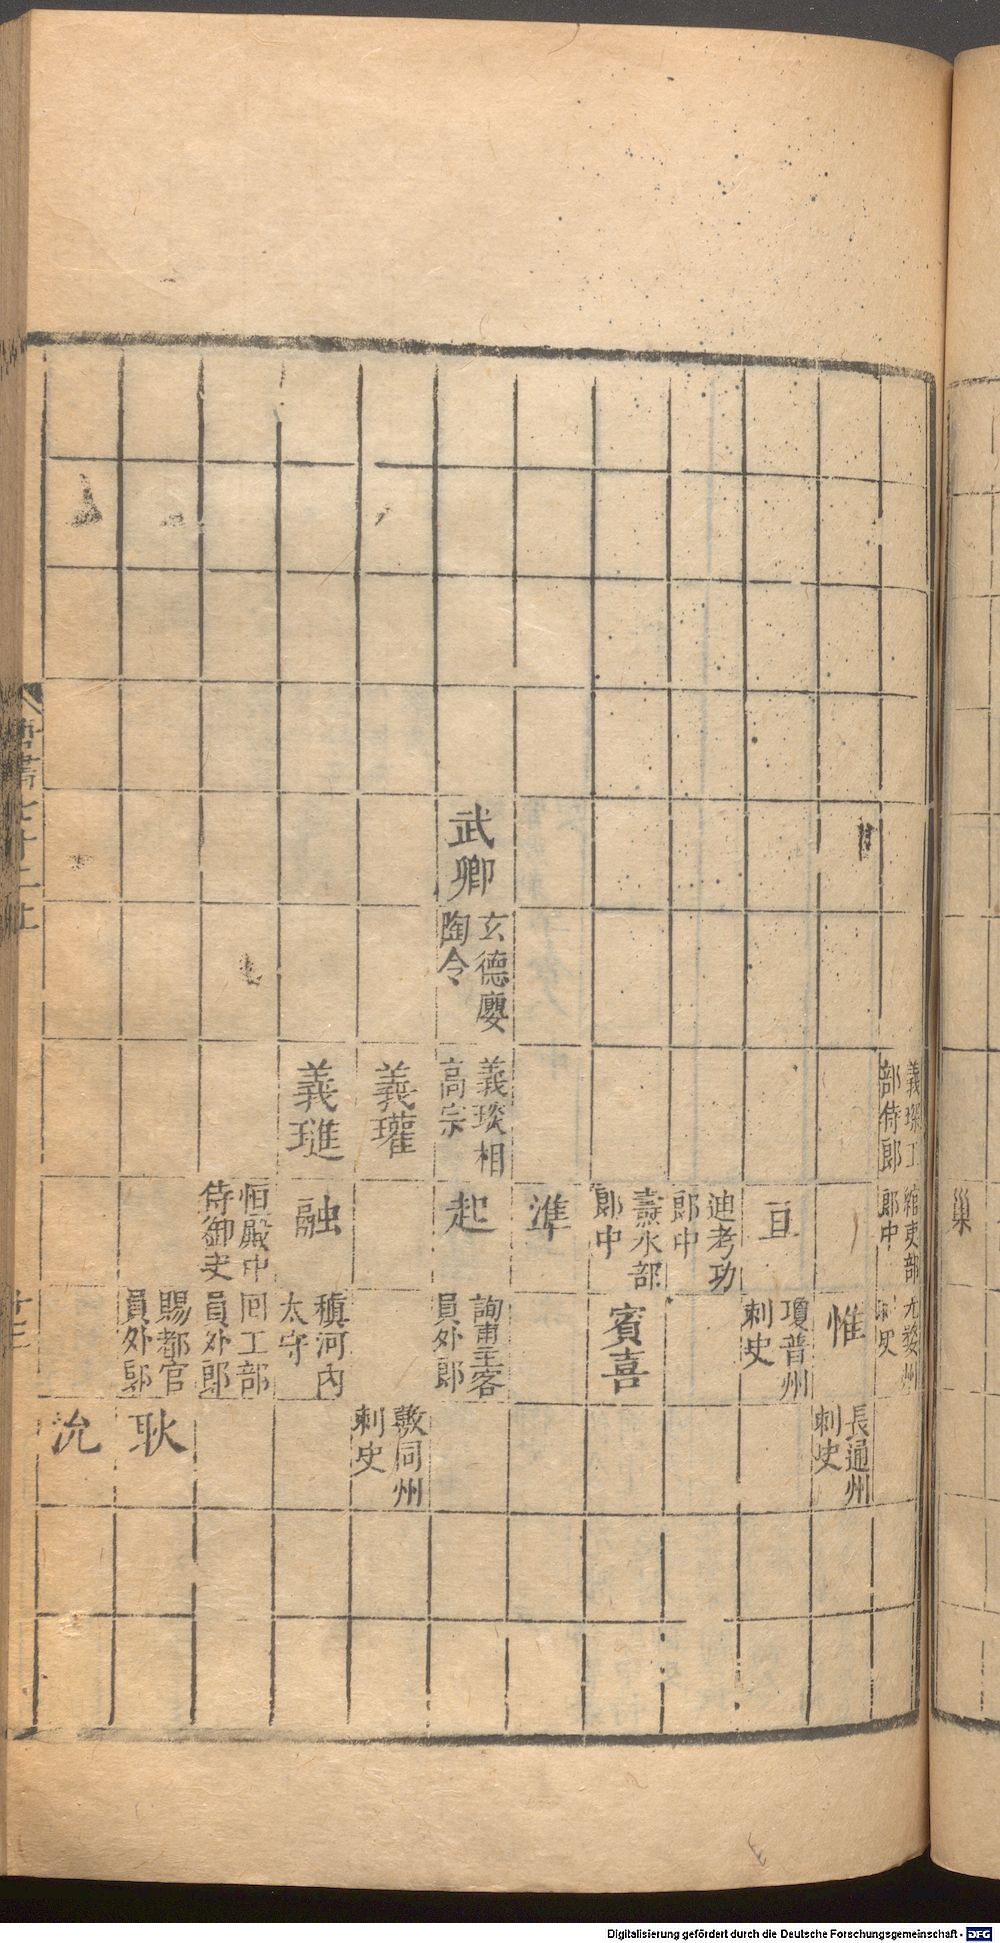 義琛工
部侍郎
綰吏部
郎中
惟
長通州
刺史
亘
瓊普州
刺史
迪考功
郎中
燾水部
郎中
賓喜
準
武卿
玄德慶
陶令
義琰相
高宗
起
詢甫主客
員外郎
義瓘
敭同州
刺史
義璡
融
稹河內
太守
恒殿中
侍御史
囘工部
員外郎
賜都官
員外郎
耿
沇
唐書七十二上
巢
Digitalisierung gefördert durch die Deutsche Forschungsgemeinschaft - DFG